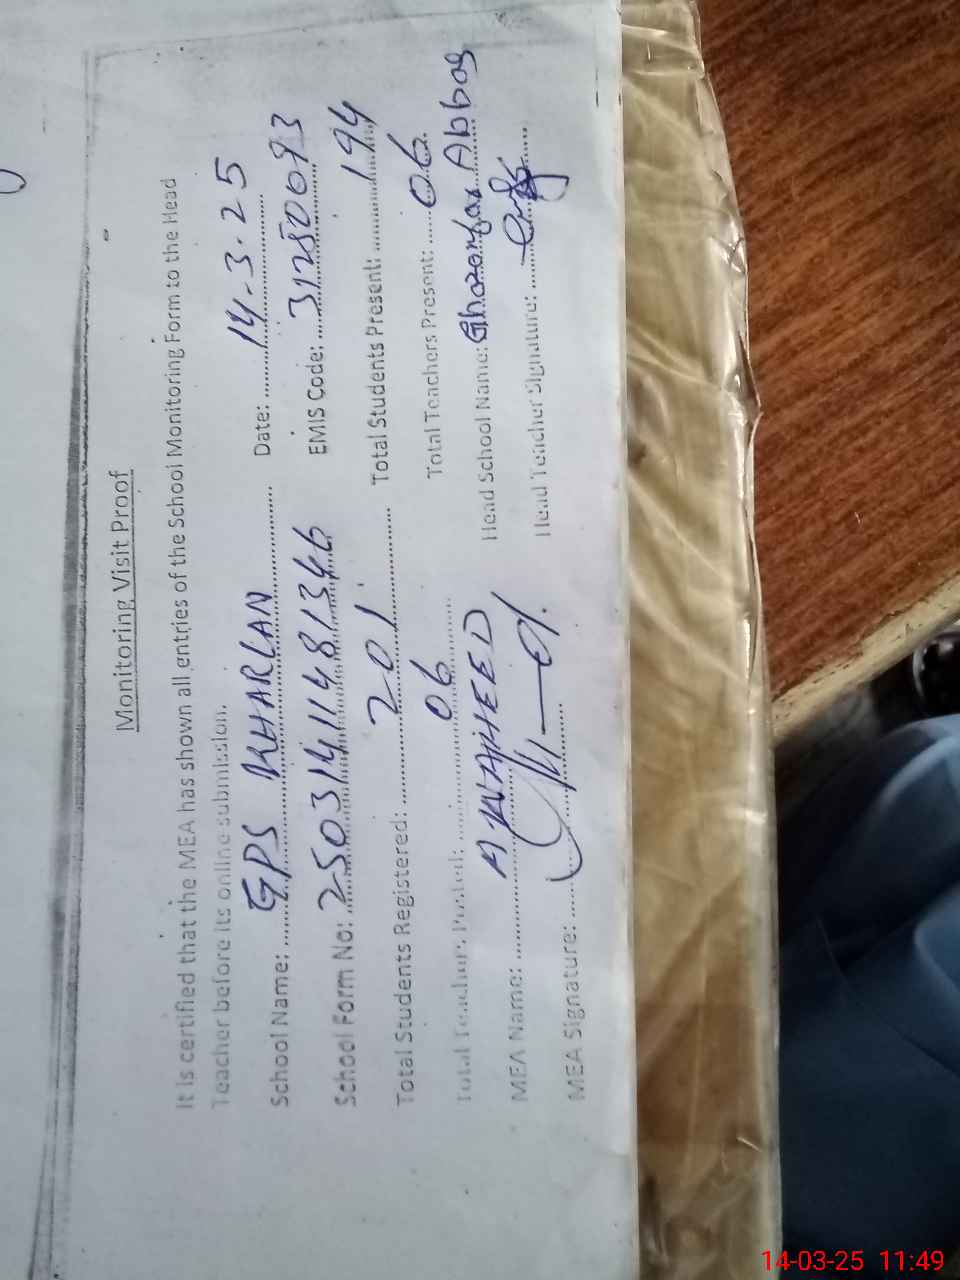 Monitoring Visit Proof
It is certified that the MEA has shown all entries of the School Monitoring Form to the Head
Teacher before its online submission.
School Name: GPS KHARLAN Date: 14-3-25
School Form No: 25031411481346 EMIS Code: 31250093
Total Students Registered: 201 Total Students Present: 194
Total Teachers Posted: 06 Total Teachers Present: 06
MEA Name: A WAHEED Head School Name: Ghazanfar Abbas
MEA Signature: Head Teacher Signature:
14-03-25 11:49